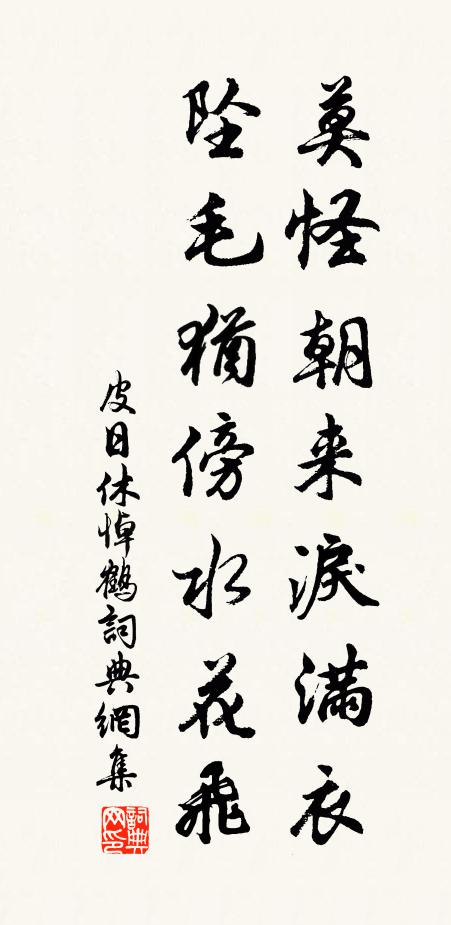 莫怪朝来淚满衣
坠毛猶傍水花飛
皮日休悼鶴詞典網集
詞典网印